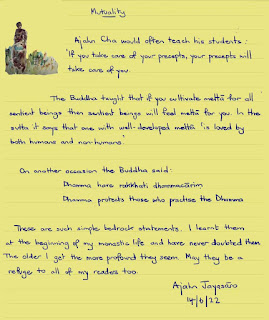 Mutuality
Ajahn Cha would often teach his students:
'If you take care of your precepts, your precepts will
take care of you.
The Buddha taught that if you cultivate mettā for all
sentient beings then sentient beings will feel mettā for you. In the
sutta it says that one with well-developed mettā 'is loved by
both humans and non-humans.'
On another occasion the Buddha said:
Dhammo have rakkhati dhammacārim
Dhamma protects those who practise the Dhamma
These are such simple bedrock statements. I learnt them
at the beginning of my monastic life and have never doubted them.
The older I get the more profound they seem. May they be a
refuge to all of my readers too.
Ajahn Jayasāro
14/6/22